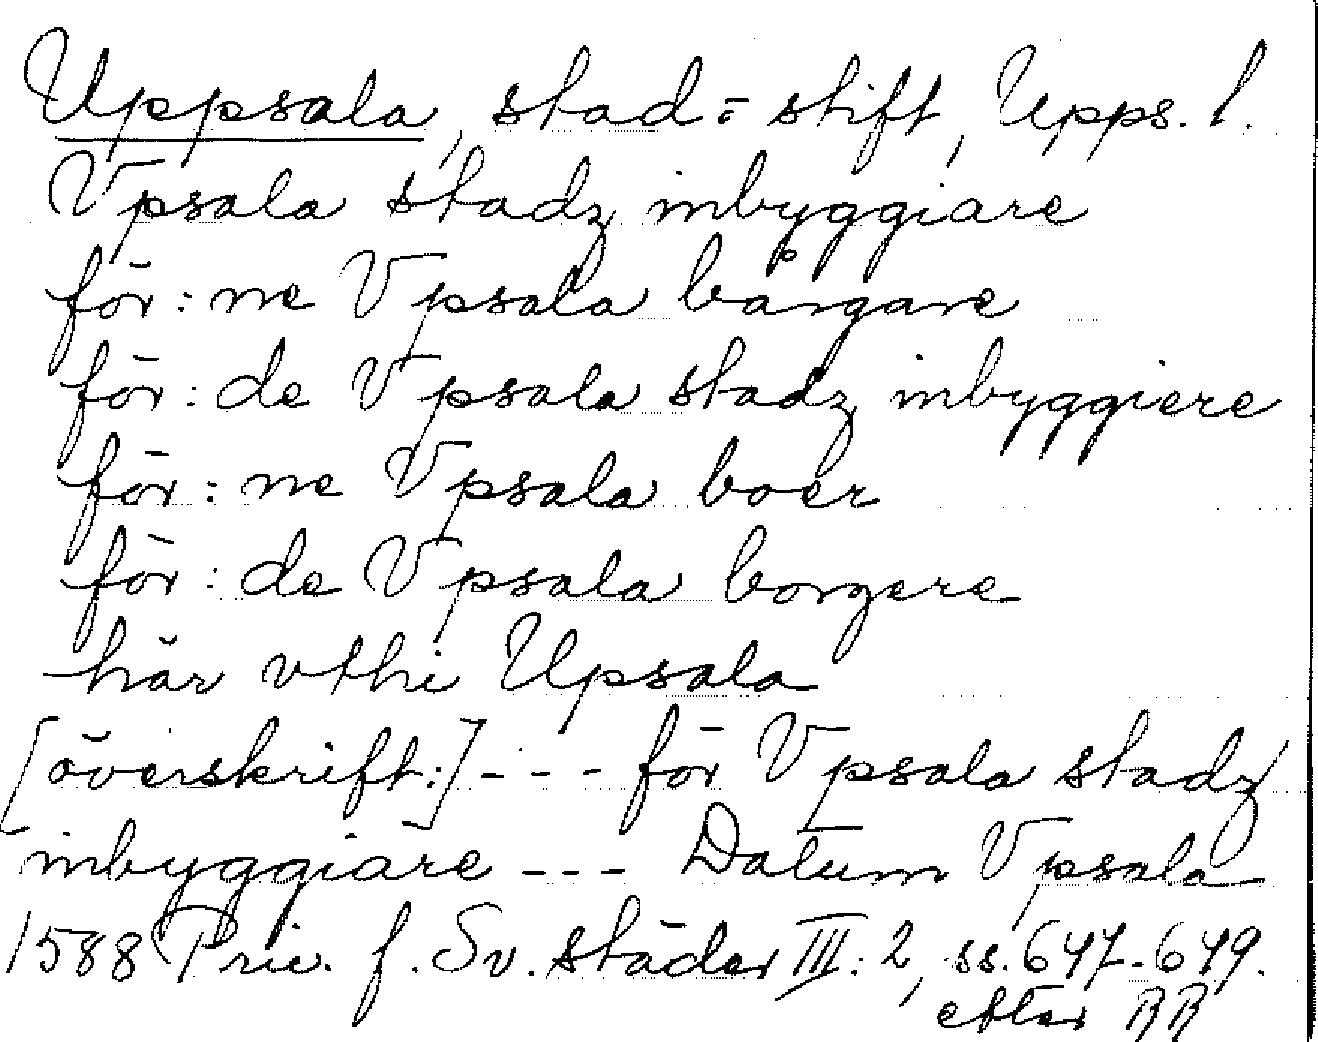 Uppsala, stad = stift, Upps. l.
Vpsala stadz inbyggiare
för: ne Vpsala bårgare
för: de Vpsala stadz inbyggiere
för: ne Vpsala boer
för: de Vpsala borgere
här vthi Upsala
[överskrift:] - - - för Vpsala stadz
inbyggiare - - - Datum Vpsala
1588 Priv. f. Sv. städer III: 2, ss. 647-649.
efter RR